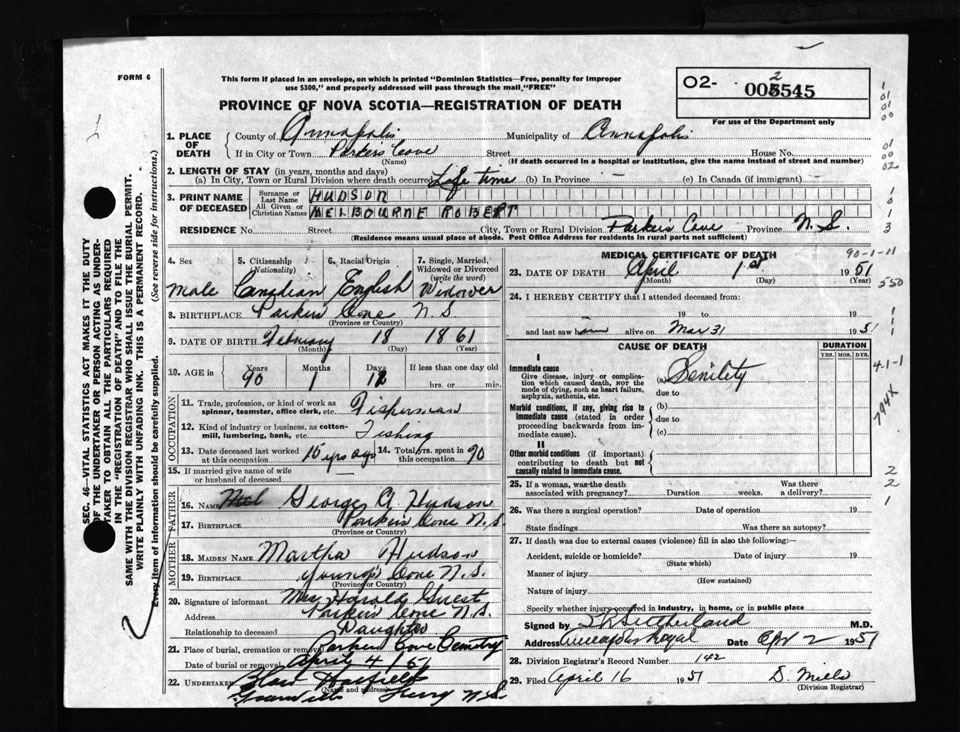 FORM 6
This form if placed in an envelope, on which is printed "Dominion Statistics—Free, penalty for improper
use $300," and properly addressed will pass through the mail "FREE"
PROVINCE OF NOVA SCOTIA—REGISTRATION OF DEATH
O2-
2
005545
For use of the Department only
1. PLACE OF DEATH
County of Annapolis Municipality of Annapolis
If in City or Town Parkers Cove Street House No.
(Name) (If death occurred in a hospital or institution, give the name instead of street and number)
2. LENGTH OF STAY (in years, months and days)
(a) In City, Town or Rural Division where death occurred Life time (b) In Province — (c) In Canada (if immigrant) —
3. PRINT NAME OF DECEASED
Surname or Last Name HUDSON
All Given or Christian Names MELBOURNE ROBERT
RESIDENCE No. Street City, Town or Rural Division Parkers Cove Province N.S.
(Residence means usual place of abode. Post Office Address for residents in rural parts not sufficient)
4. Sex Male
5. Citizenship (Nationality) Canadian
6. Racial Origin English
7. Single, Married, Widowed or Divorced (write the word) Widower
8. BIRTHPLACE Parkers Cove N.S.
(Province or Country)
9. DATE OF BIRTH February 18 1861
(Month) (Day) (Year)
10. AGE in Years 90 Months 1 Days If less than one day old hrs. or min.
OCCUPATION
11. Trade, profession, or kind of work as spinner, teamster, office clerk, etc. Fisherman
12. Kind of industry or business, as cotton-mill, lumbering, bank, etc. Fishing
13. Date deceased last worked at this occupation 10 yrs ago 14. Total yrs. spent in this occupation 90
15. If married give name of wife or husband of deceased —
FATHER
16. Name George G Hudson
17. Birthplace Parkers Cove N.S.
(Province or Country)
MOTHER
18. MAIDEN NAME Martha Hudson
19. Birthplace Youngs Cove N.S.
(Province or Country)
20. Signature of informant Mrs Harold Guest
Address Parkers Cove N.S.
Relationship to deceased Daughter
21. Place of burial, cremation or removal Parkers Cove Cemetry
Date of burial or removal April 4/51
22. UNDERTAKER Hatfield
(Name and address)
Granville Ferry N.S.
MEDICAL CERTIFICATE OF DEATH
23. DATE OF DEATH April 1st 1951
(Month) (Day) (Year)
24. I HEREBY CERTIFY that I attended deceased from:
19 to 19
and last saw him alive on Mar 31 1951
CAUSE OF DEATH
DURATION
YRS. MOS. DYS.
I
Immediate cause
Give disease, injury or complication which caused death, NOT the mode of dying, such as heart failure, asphyxia, asthenia, etc.
(a) Senility
due to
Morbid conditions, if any, giving rise to immediate cause (stated in order proceeding backwards from immediate cause).
(b)
due to
(c)
II
Other morbid conditions (if important) contributing to death but not causally related to immediate cause.
25. If a woman, was the death associated with pregnancy? Duration weeks. Was there a delivery?
26. Was there a surgical operation? Date of operation 19
State findings Was there an autopsy?
27. If death was due to external causes (violence) fill in also the following:—
Accident, suicide or homicide? Date of injury 19
(State which)
Manner of injury
(How sustained)
Nature of injury
Specify whether injury occurred in industry, in home, or in public place
Signed by Sutherland M.D.
Address Annapolis Royal Date Apr 2 1951
28. Division Registrar's Record Number 142
29. Filed April 16 1951 D. Mills
(Division Registrar)
SEC. 46—VITAL STATISTICS ACT MAKES IT THE DUTY
OF THE UNDERTAKER OR PERSON ACTING AS UNDER-
TAKER TO OBTAIN ALL THE PARTICULARS REQUIRED
IN THE "REGISTRATION OF DEATH" AND TO FILE THE
SAME WITH THE DIVISION REGISTRAR WHO SHALL ISSUE THE BURIAL PERMIT.
WRITE PLAINLY WITH UNFADING INK. THIS IS A PERMANENT RECORD.
Every item of information should be carefully supplied. (See reverse side for instructions.)
90-1-11
550
41-1
794X
2
2
1